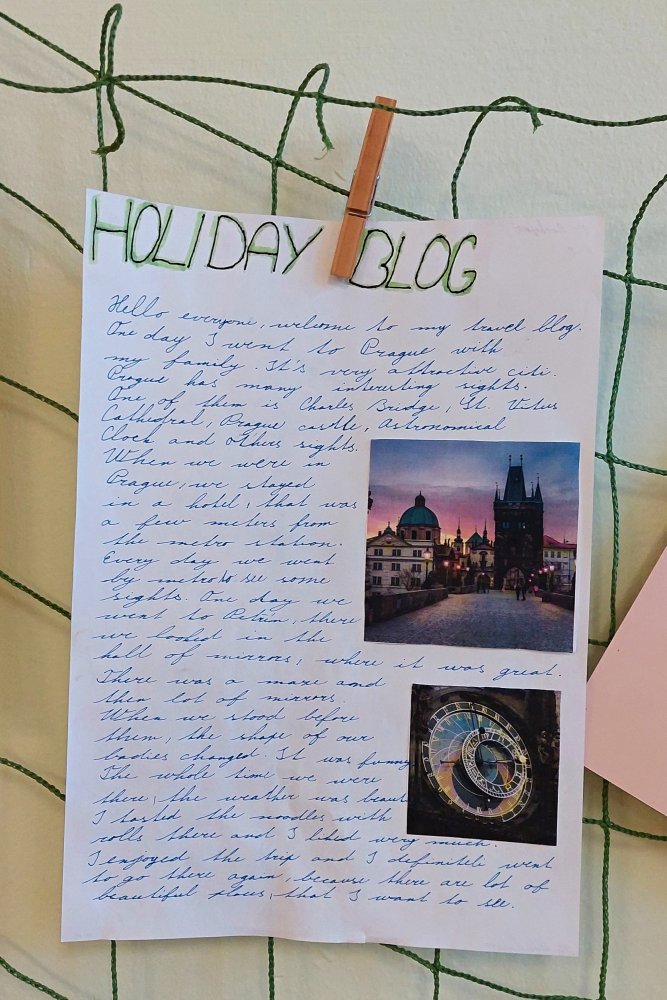 HOLIDAY BLOG
Hello everyone, welcome to my travel blog.
One day I went to Prague with
my family. It's very attractive citi.
Prague has many interesting sights.
One of them is Charles Bridge, St. Vitus
Cathedral, Prague castle, Astronomical
Clock and others sights.
When we were in
Prague, we stayed
in a hotel, that was
a few meters from
the metro station.
Every day we went
by metro to see some
sights. One day we
went to Petřín, there
we looked in the
hall of mirrors, where it was great.
There was a maze and
then lot of mirrors.
When we stood before
them, the shape of our
badies changed. It was funny
The whole time we were
there, the weather was beaut
I tasted the noodles with
rolls there and I liked very much.
I enjoyed the trip and I definiteli went
to go there again, because there are lot of
beautiful places, that I want to see.